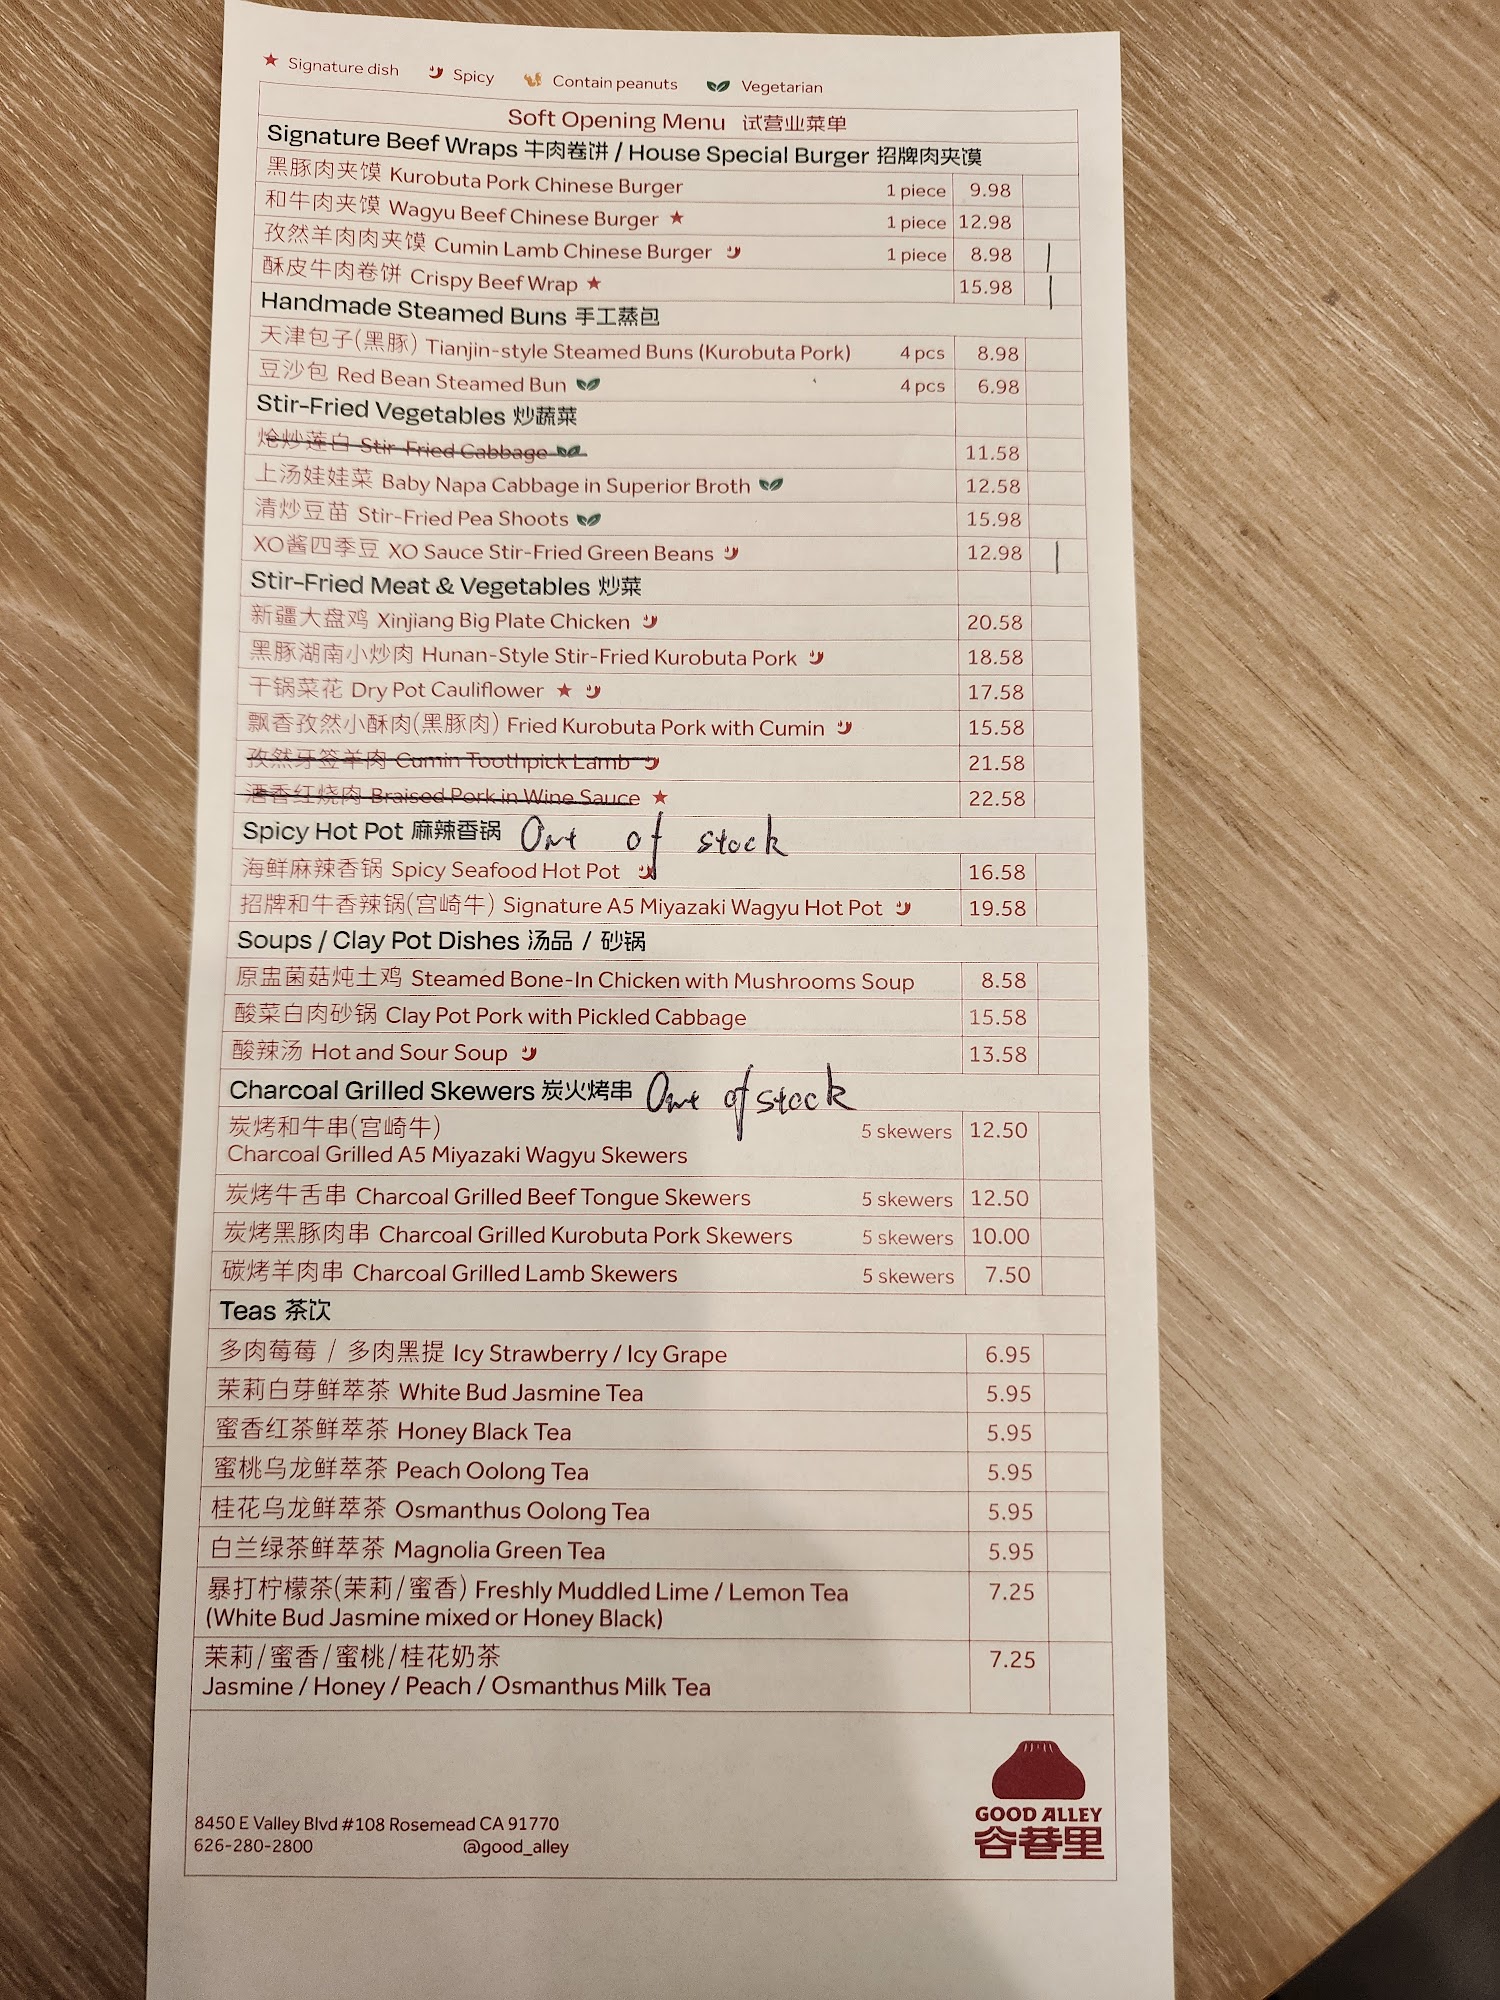 Signature dish Spicy Contain peanuts Vegetarian
Soft Opening Menu 试营业菜单
Signature Beef Wraps 牛肉卷饼 / House Special Burger 招牌肉夹馍
黑豚肉夹馍 Kurobuta Pork Chinese Burger 1 piece 9.98
和牛肉夹馍 Wagyu Beef Chinese Burger 1 piece 12.98
孜然羊肉肉夹馍 Cumin Lamb Chinese Burger 1 piece 8.98 |
酥皮牛肉卷饼 Crispy Beef Wrap 15.98 |
Handmade Steamed Buns 手工蒸包
天津包子(黑豚) Tianjin-style Steamed Buns (Kurobuta Pork) 4 pcs 8.98
豆沙包 Red Bean Steamed Bun 4 pcs 6.98
Stir-Fried Vegetables 炒蔬菜
炝炒莲白 Stir-Fried Cabbage 11.58
上汤娃娃菜 Baby Napa Cabbage in Superior Broth 12.58
清炒豆苗 Stir-Fried Pea Shoots 15.98
XO酱四季豆 XO Sauce Stir-Fried Green Beans 12.98 |
Stir-Fried Meat & Vegetables 炒菜
新疆大盘鸡 Xinjiang Big Plate Chicken 20.58
黑豚湖南小炒肉 Hunan-Style Stir-Fried Kurobuta Pork 18.58
干锅菜花 Dry Pot Cauliflower 17.58
飘香孜然小酥肉(黑豚肉) Fried Kurobuta Pork with Cumin 15.58
孜然牙签羊肉 Cumin Toothpick Lamb 21.58
酒香红烧肉 Braised Pork in Wine Sauce 22.58
Spicy Hot Pot 麻辣香锅 Out of stock
海鲜麻辣香锅 Spicy Seafood Hot Pot 16.58
招牌和牛香辣锅(宫崎牛) Signature A5 Miyazaki Wagyu Hot Pot 19.58
Soups / Clay Pot Dishes 汤品 / 砂锅
原盅菌菇炖土鸡 Steamed Bone-In Chicken with Mushrooms Soup 8.58
酸菜白肉砂锅 Clay Pot Pork with Pickled Cabbage 15.58
酸辣汤 Hot and Sour Soup 13.58
Charcoal Grilled Skewers 炭火烤串 Out of stock
炭烤和牛串(宫崎牛) 5 skewers 12.50
Charcoal Grilled A5 Miyazaki Wagyu Skewers
炭烤牛舌串 Charcoal Grilled Beef Tongue Skewers 5 skewers 12.50
炭烤黑豚肉串 Charcoal Grilled Kurobuta Pork Skewers 5 skewers 10.00
碳烤羊肉串 Charcoal Grilled Lamb Skewers 5 skewers 7.50
Teas 茶饮
多肉莓莓 / 多肉黑提 Icy Strawberry / Icy Grape 6.95
茉莉白芽鲜萃茶 White Bud Jasmine Tea 5.95
蜜香红茶鲜萃茶 Honey Black Tea 5.95
蜜桃乌龙鲜萃茶 Peach Oolong Tea 5.95
桂花乌龙鲜萃茶 Osmanthus Oolong Tea 5.95
白兰绿茶鲜萃茶 Magnolia Green Tea 5.95
暴打柠檬茶(茉莉/蜜香) Freshly Muddled Lime / Lemon Tea 7.25
(White Bud Jasmine mixed or Honey Black)
茉莉/蜜香/蜜桃/桂花奶茶 7.25
Jasmine / Honey / Peach / Osmanthus Milk Tea
GOOD ALLEY
谷巷里
8450 E Valley Blvd #108 Rosemead CA 91770
626-280-2800 @good_alley